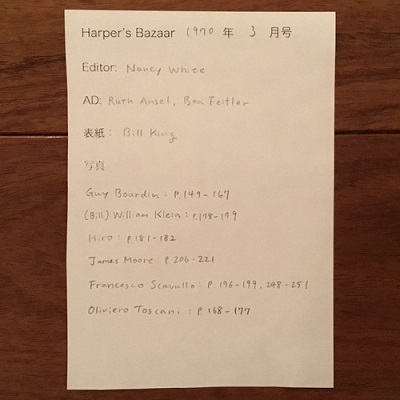 Harper's Bazaar 1970 年 3 月号
Editor: Nancy White
AD: Ruth Ansel, Bea Feitler
表紙: Bill King
写真
Guy Bourdin: P.149-167
(Bill) William Klein: P.178-179
Hiro: P.181-182
James Moore: P.206-221
Francesco Scavullo: P.196-199, 248-251
Oliviero Toscani: P.168-177